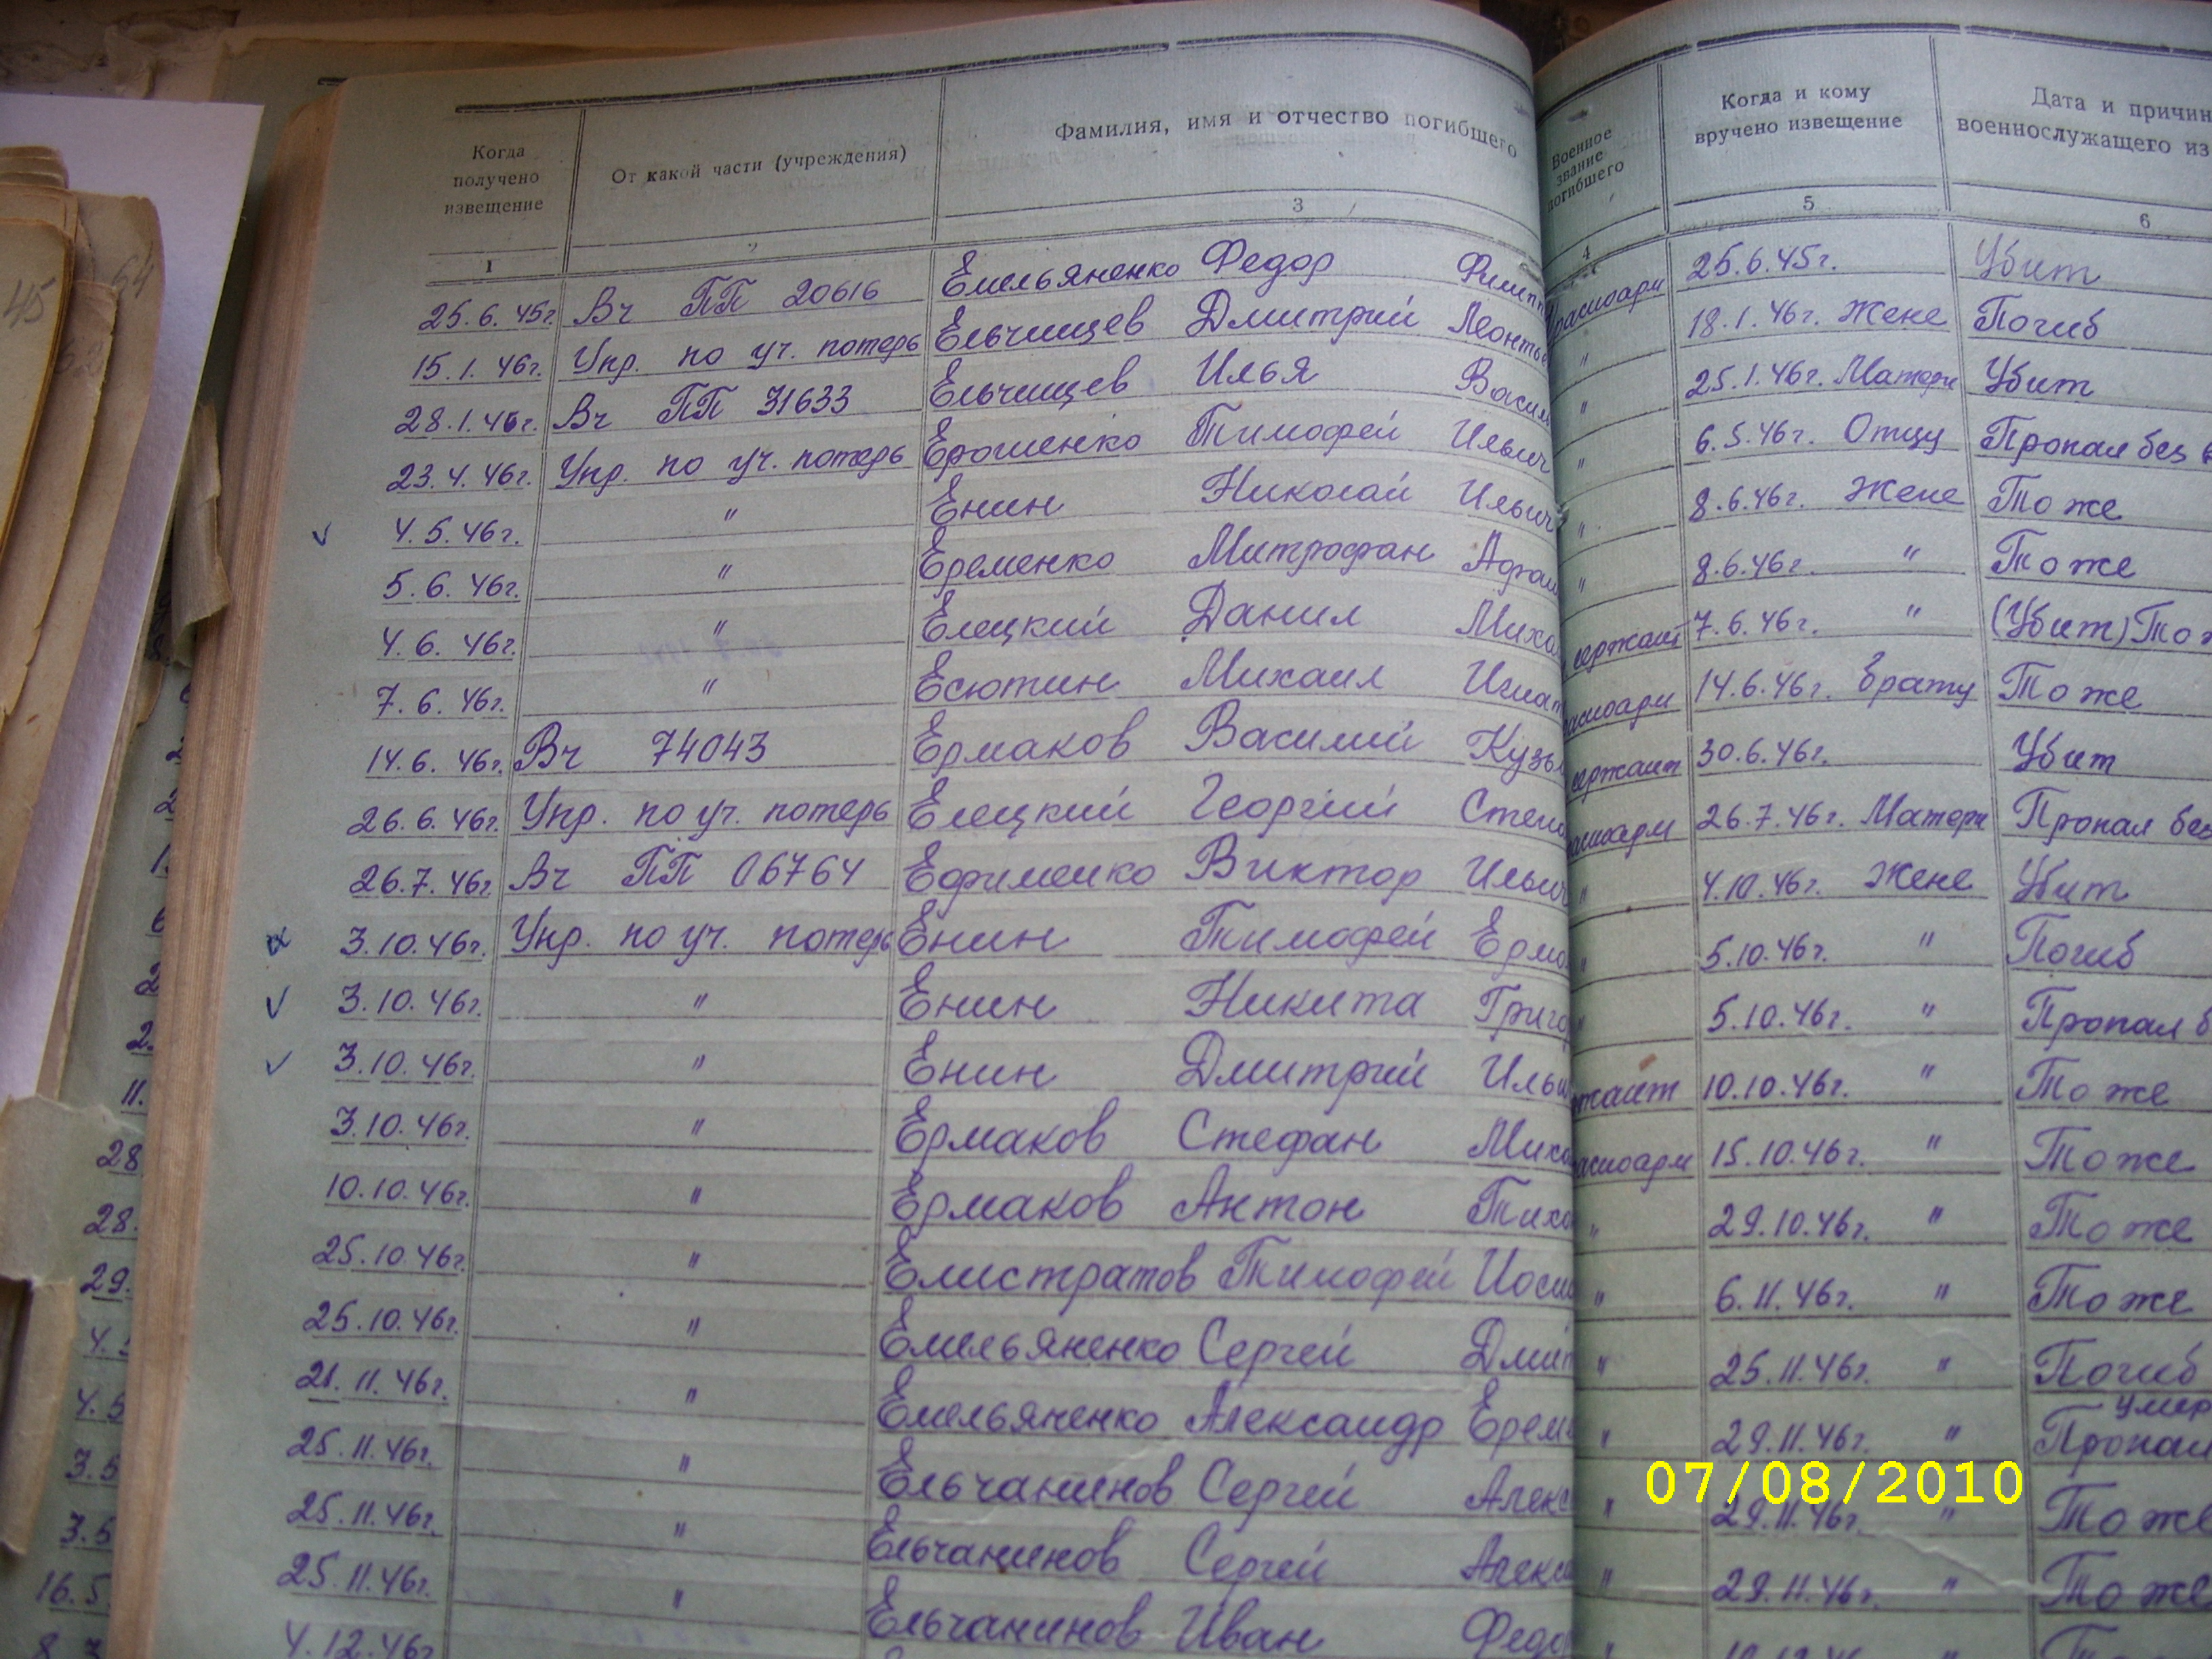 Когда получено извещение
От какой части (учреждения)
Фамилия, имя и отчество погибшего
Военное звание погибшего
Когда и кому вручено извещение
Дата и причин
военнослужащего из
1 2 3 4 5 6
25.6.45г. Вч ПП 20616 Емельяненко Федор Филипп 25.6.45г. Убит
15.1.46г. Упр. по уч. потерь Ельчищев Дмитрий Леонтье " 18.1.46г. Жене Погиб
28.1.46г. Вч ПП 31633 Ельчищев Илья Васил " 25.1.46г. Матери Убит
23.4.46г. Упр. по уч. потерь Ерошенко Тимофей Ильич " 6.5.46г. Отцу Пропал без в
4.5.46г. " Енин Николай Ильич " 8.6.46г. Жене То же
5.6.46г. " Еременко Митрофан Афан " 8.6.46г. " То же
4.6.46г. " Елецкий Данил Миха сержант 7.6.46г. " (Убит) То ж
7.6.46г. " Есютин Михаил Игнат асноарм 14.6.46г. Брату То же
14.6.46г. Вч 74043 Ермаков Василий Кузь ержант 30.6.46г. Убит
26.6.46г. Упр. по уч. потерь Елецкий Георгий Степа асноарм 26.7.46г. Матери Пропал без
26.7.46г. Вч ПП 06764 Ефименко Виктор Ильич " 4.10.46г. Жене Убит
3.10.46г. Упр. по уч. потерь Енин Тимофей Ермо " 5.10.46г. " Погиб
3.10.46г. " Енин Никита Григо " 5.10.46г. " Пропал б
3.10.46г. " Енин Дмитрий Ильи жант 10.10.46г. " То же
3.10.46г. " Ермаков Стефан Миха асноарм 15.10.46г. " То же
10.10.46г. " Ермаков Антон Тихо " 29.10.46г. " То же
25.10.46г. " Елистратов Тимофей Иоси " 6.11.46г. " То же
25.10.46г. " Емельяненко Сергей Дмит " 25.11.46г. " Погиб
умер
21.11.46г. " Емельяненко Александр Ерем " 29.11.46г. " Пропал
25.11.46г. " Ельчанинов Сергей Алекс " 29.11.46г. " То же
25.11.46г. " Ельчанинов Сергей Алекс " 29.11.46г. " То же
25.11.46г. " Ельчанинов Иван Федо
4.12.46г
45
64
62
28
28.
29.
4.5
3.5
3.5
16.5.
07/08/2010